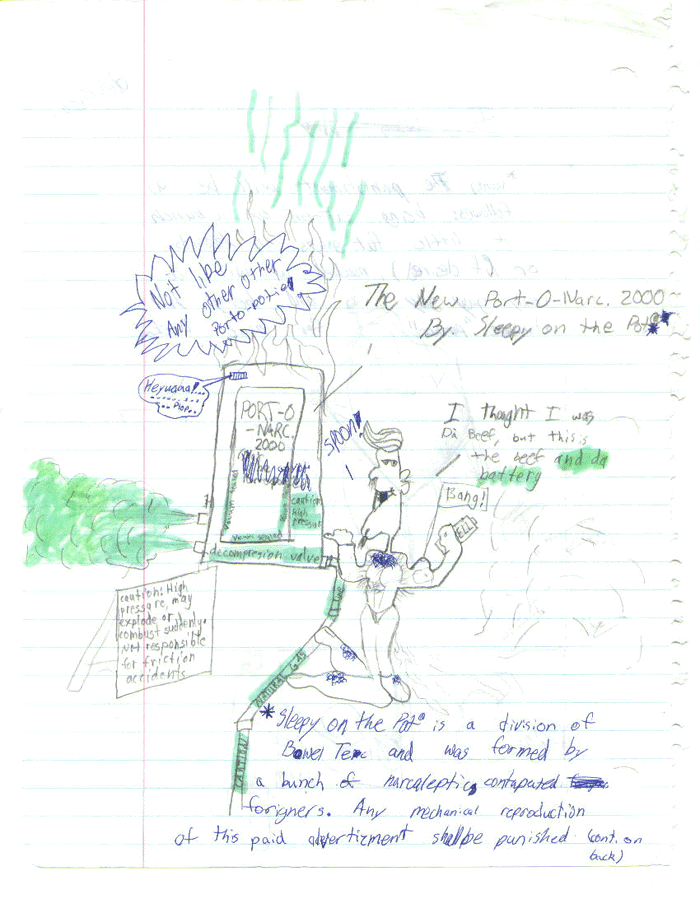 Not like
Any other other
Porto-potie!
The New Port-O-Narc. 2000
By. Sleepy on the Pot®*
PORT-O
-NARC.
2000
spoon!
I thought I was
Da Beef, but this is
the beef and da
battery
Bang!
ELL
caution
high
decompresion valve
caution: High
pressure, may
explode or
combust suddenly.
Not responsible
for friction
accidents
NATURAL GAS
*Sleepy on the Pot® is a division of
Bowel Tec and was formed by
a bunch of narcaleptic, contapated
forigners. Any mechanical reproduction
of this paid advertizment shallbe punished (cont. on
back)